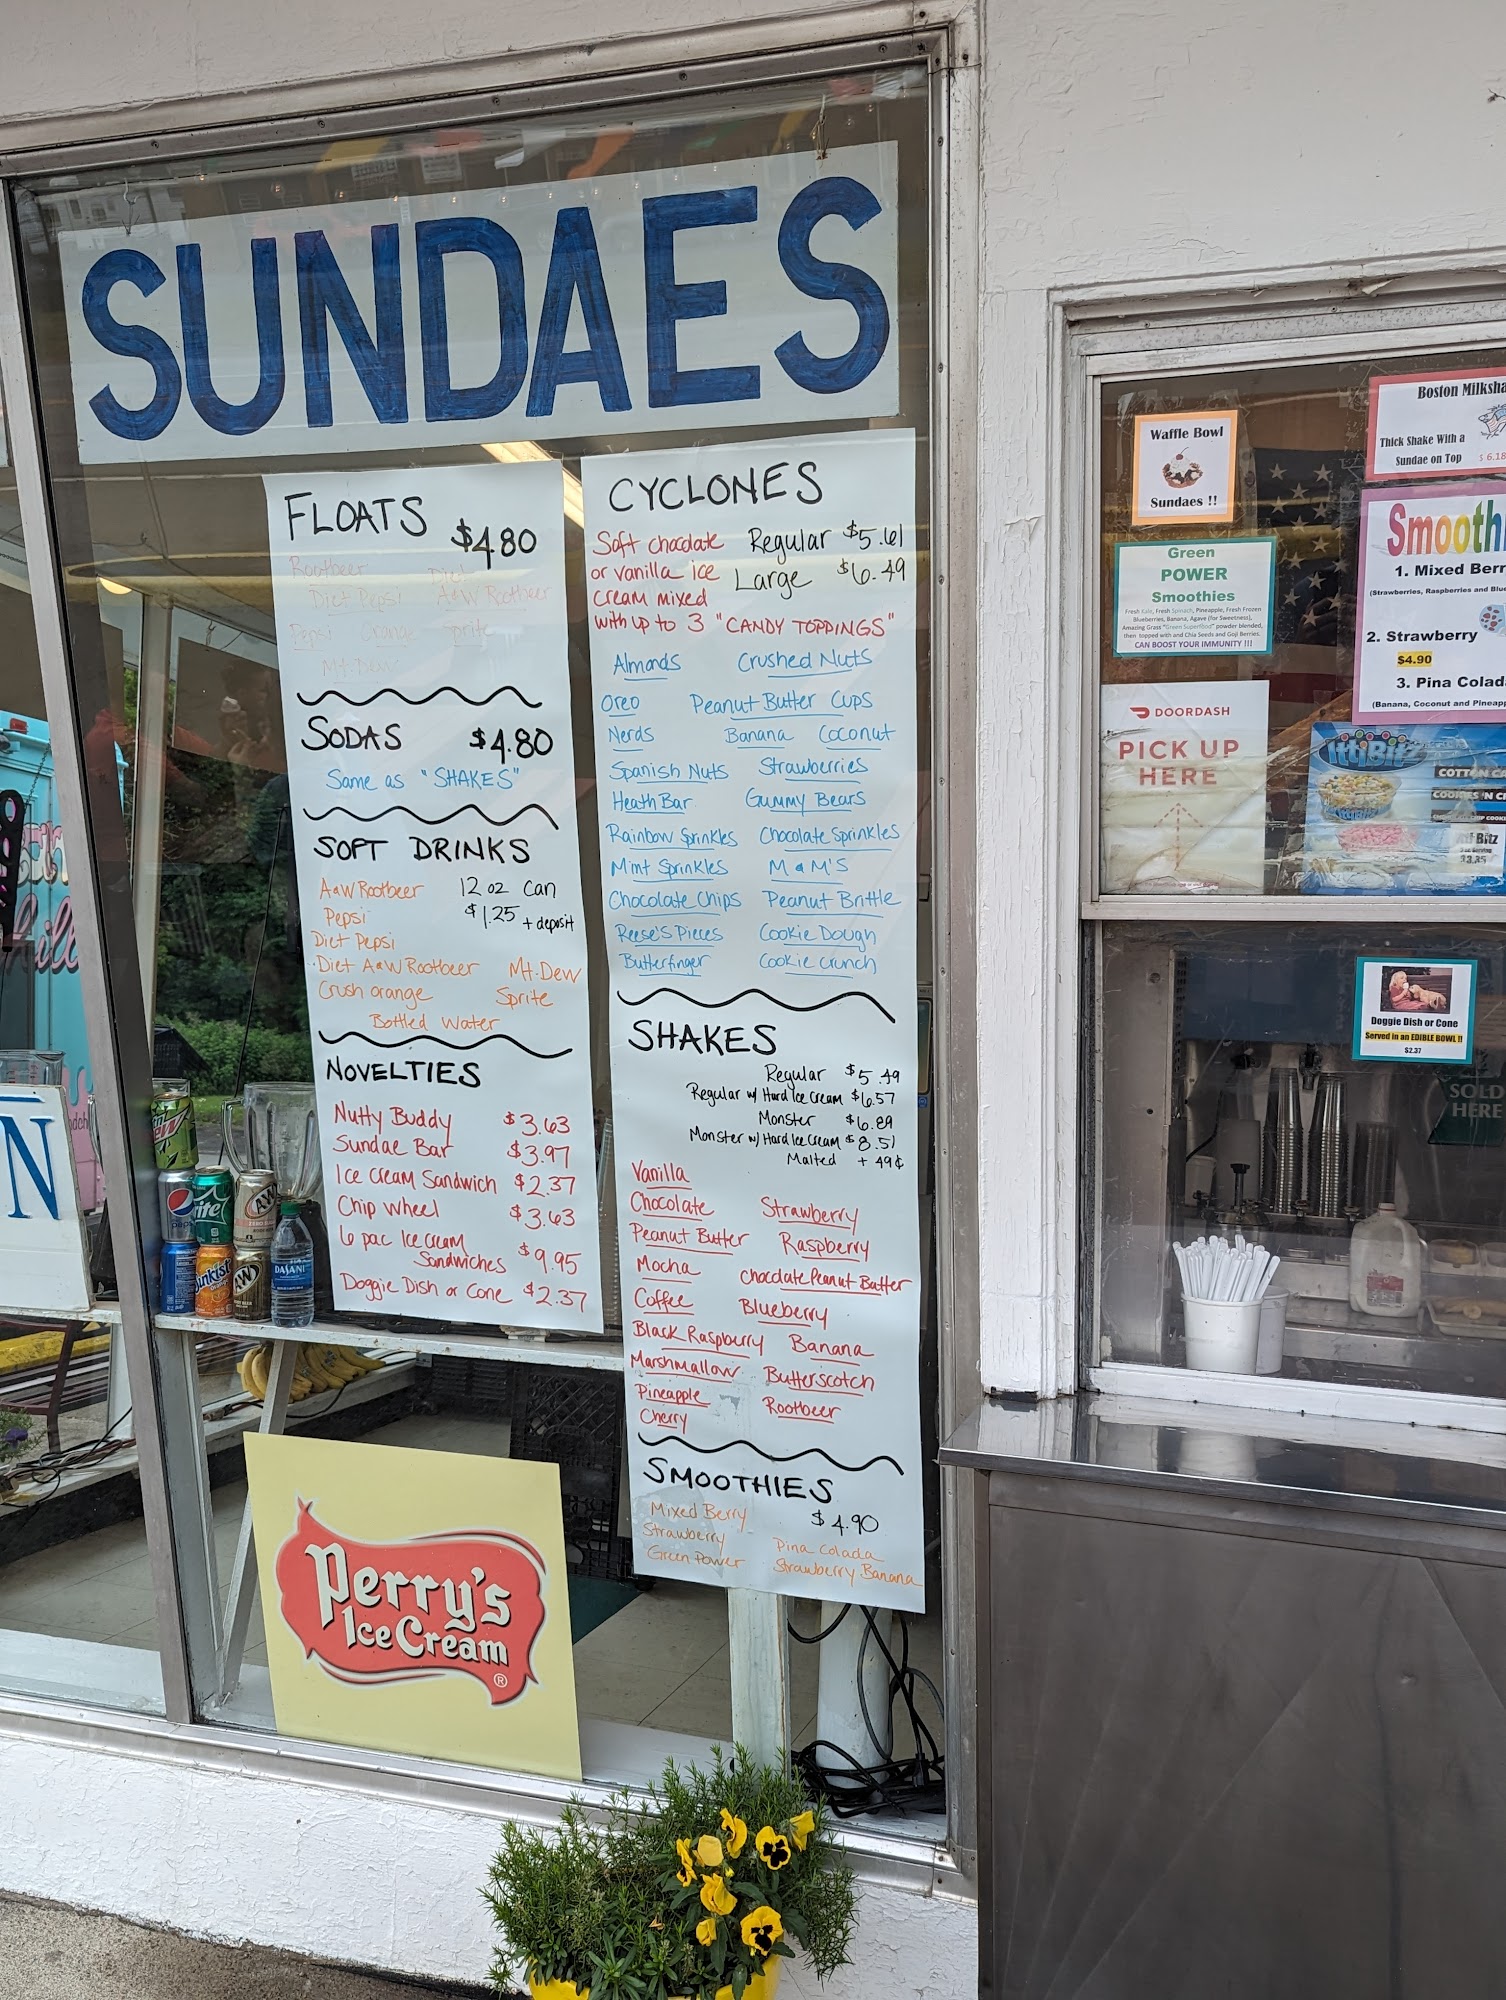 SUNDAES
FLOATS $4.80
Rootbeer Diet
Diet Pepsi A&W Rootbeer
Pepsi Orange Sprite
Mt. Dew
SODAS $4.80
Same as "SHAKES"
SOFT DRINKS
A&W Rootbeer 12 oz can
Pepsi $1.25 + deposit
Diet Pepsi
Diet A&W Rootbeer Mt. Dew
Crush orange Sprite
Bottled Water
NOVELTIES
Nutty Buddy $3.63
Sundae Bar $3.97
Ice Cream Sandwich $2.37
Chip Wheel $3.63
6 pac Ice cream
Sandwiches $9.95
Doggie Dish or Cone $2.37
CYCLONES
Soft chocolate Regular $5.61
or vanilla ice Large $6.49
cream mixed
with up to 3 "CANDY TOPPINGS"
Almonds Crushed Nuts
Oreo Peanut Butter Cups
Nerds Banana Coconut
Spanish Nuts Strawberries
Heath Bar Gummy Bears
Rainbow Sprinkles Chocolate Sprinkles
Mint Sprinkles M & M'S
Chocolate Chips Peanut Brittle
Reese's Pieces Cookie Dough
Butterfinger Cookie Crunch
SHAKES
Regular $5.49
Regular w/ Hard Ice Cream $6.57
Monster $6.89
Monster w/ Hard Ice Cream $8.51
Malted + 49¢
Vanilla
Chocolate Strawberry
Peanut Butter Raspberry
Mocha Chocolate Peanut Butter
Coffee Blueberry
Black Raspberry Banana
Marshmallow Butterscotch
Pineapple Rootbeer
Cherry
SMOOTHIES
Mixed Berry $4.90
Strawberry Pina Colada
Green Power Strawberry Banana
Perry's
Ice Cream
®
N
Dew
pepsi
rite
A&W
unkist
A&W
DASANI
Waffle Bowl
Sundaes !!
Green
POWER
Smoothies
Fresh Kale, Fresh Spinach, Pineapple, Fresh Frozen
Blueberries, Banana, Agave (for Sweetness),
Amazing Grass "Green Superfood" powder blended,
then topped with and Chia Seeds and Goji Berries.
CAN BOOST YOUR IMMUNITY !!!
DOORDASH
PICK UP
HERE
Boston Milksha
Thick Shake With a
Sundae on Top $ 6.18
Smoothi
1. Mixed Berr
(Strawberries, Raspberries and Blue
2. Strawberry
$4.90
3. Pina Colad
(Banana, Coconut and Pineapp
IttiBitz
COTTON CA
COOKIES 'N CR
Itti Bitz
Doggie Dish or Cone
Served in an EDIBLE BOWL !!
$2.37
SOLD
HERE